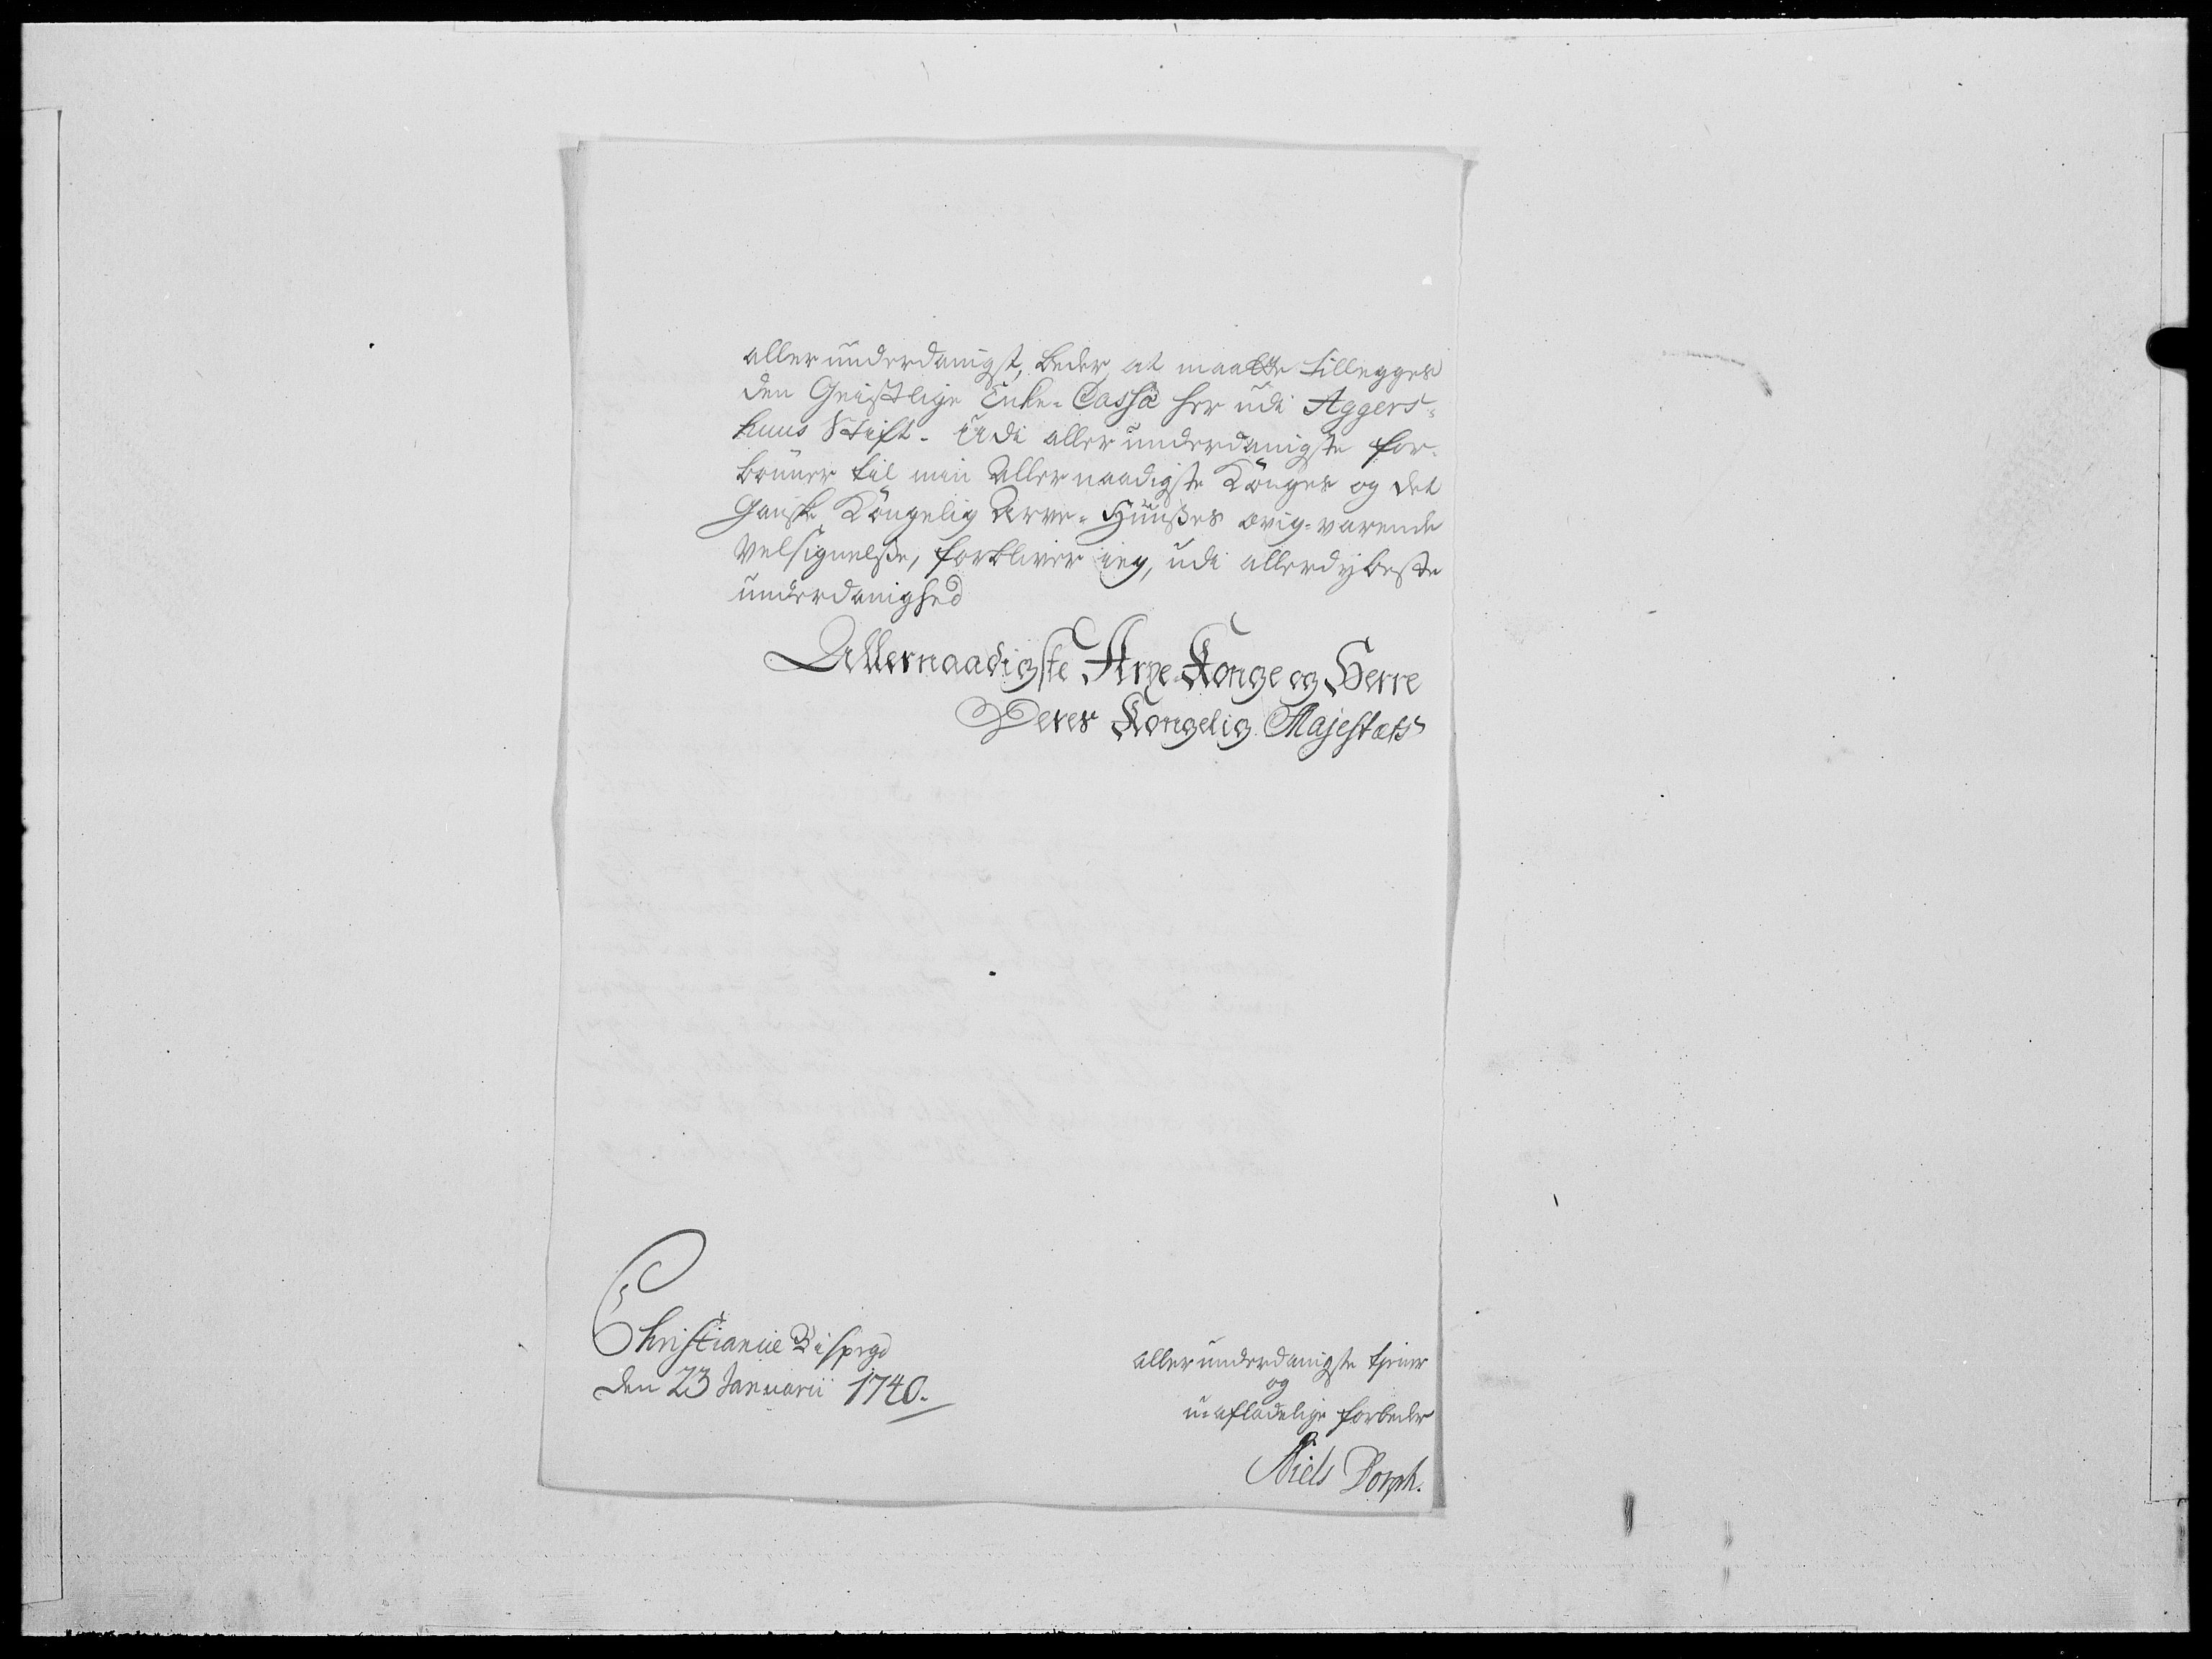 allerunderdanigst, beder, at maatte tillegges
den Geistlige Enke-Cassa her udi Aggers-
huus Stift. Udi allerunderdanigste for-
bönner til min Allernaadigste Könges og det
Gandske Köngelig Arve-Huußes ævig-varende
Velsignelße, forbliver ieg, udi allerdybeste
underdanighed
Allernaadigste Arve-Konge og Herre
Deres Kongelig Majestæts
Christianiæ Bispegd
den 23 Januarii 1740.
allerunderdanigste tjener
og
u-afladelige forbeder
Niels Dorph.